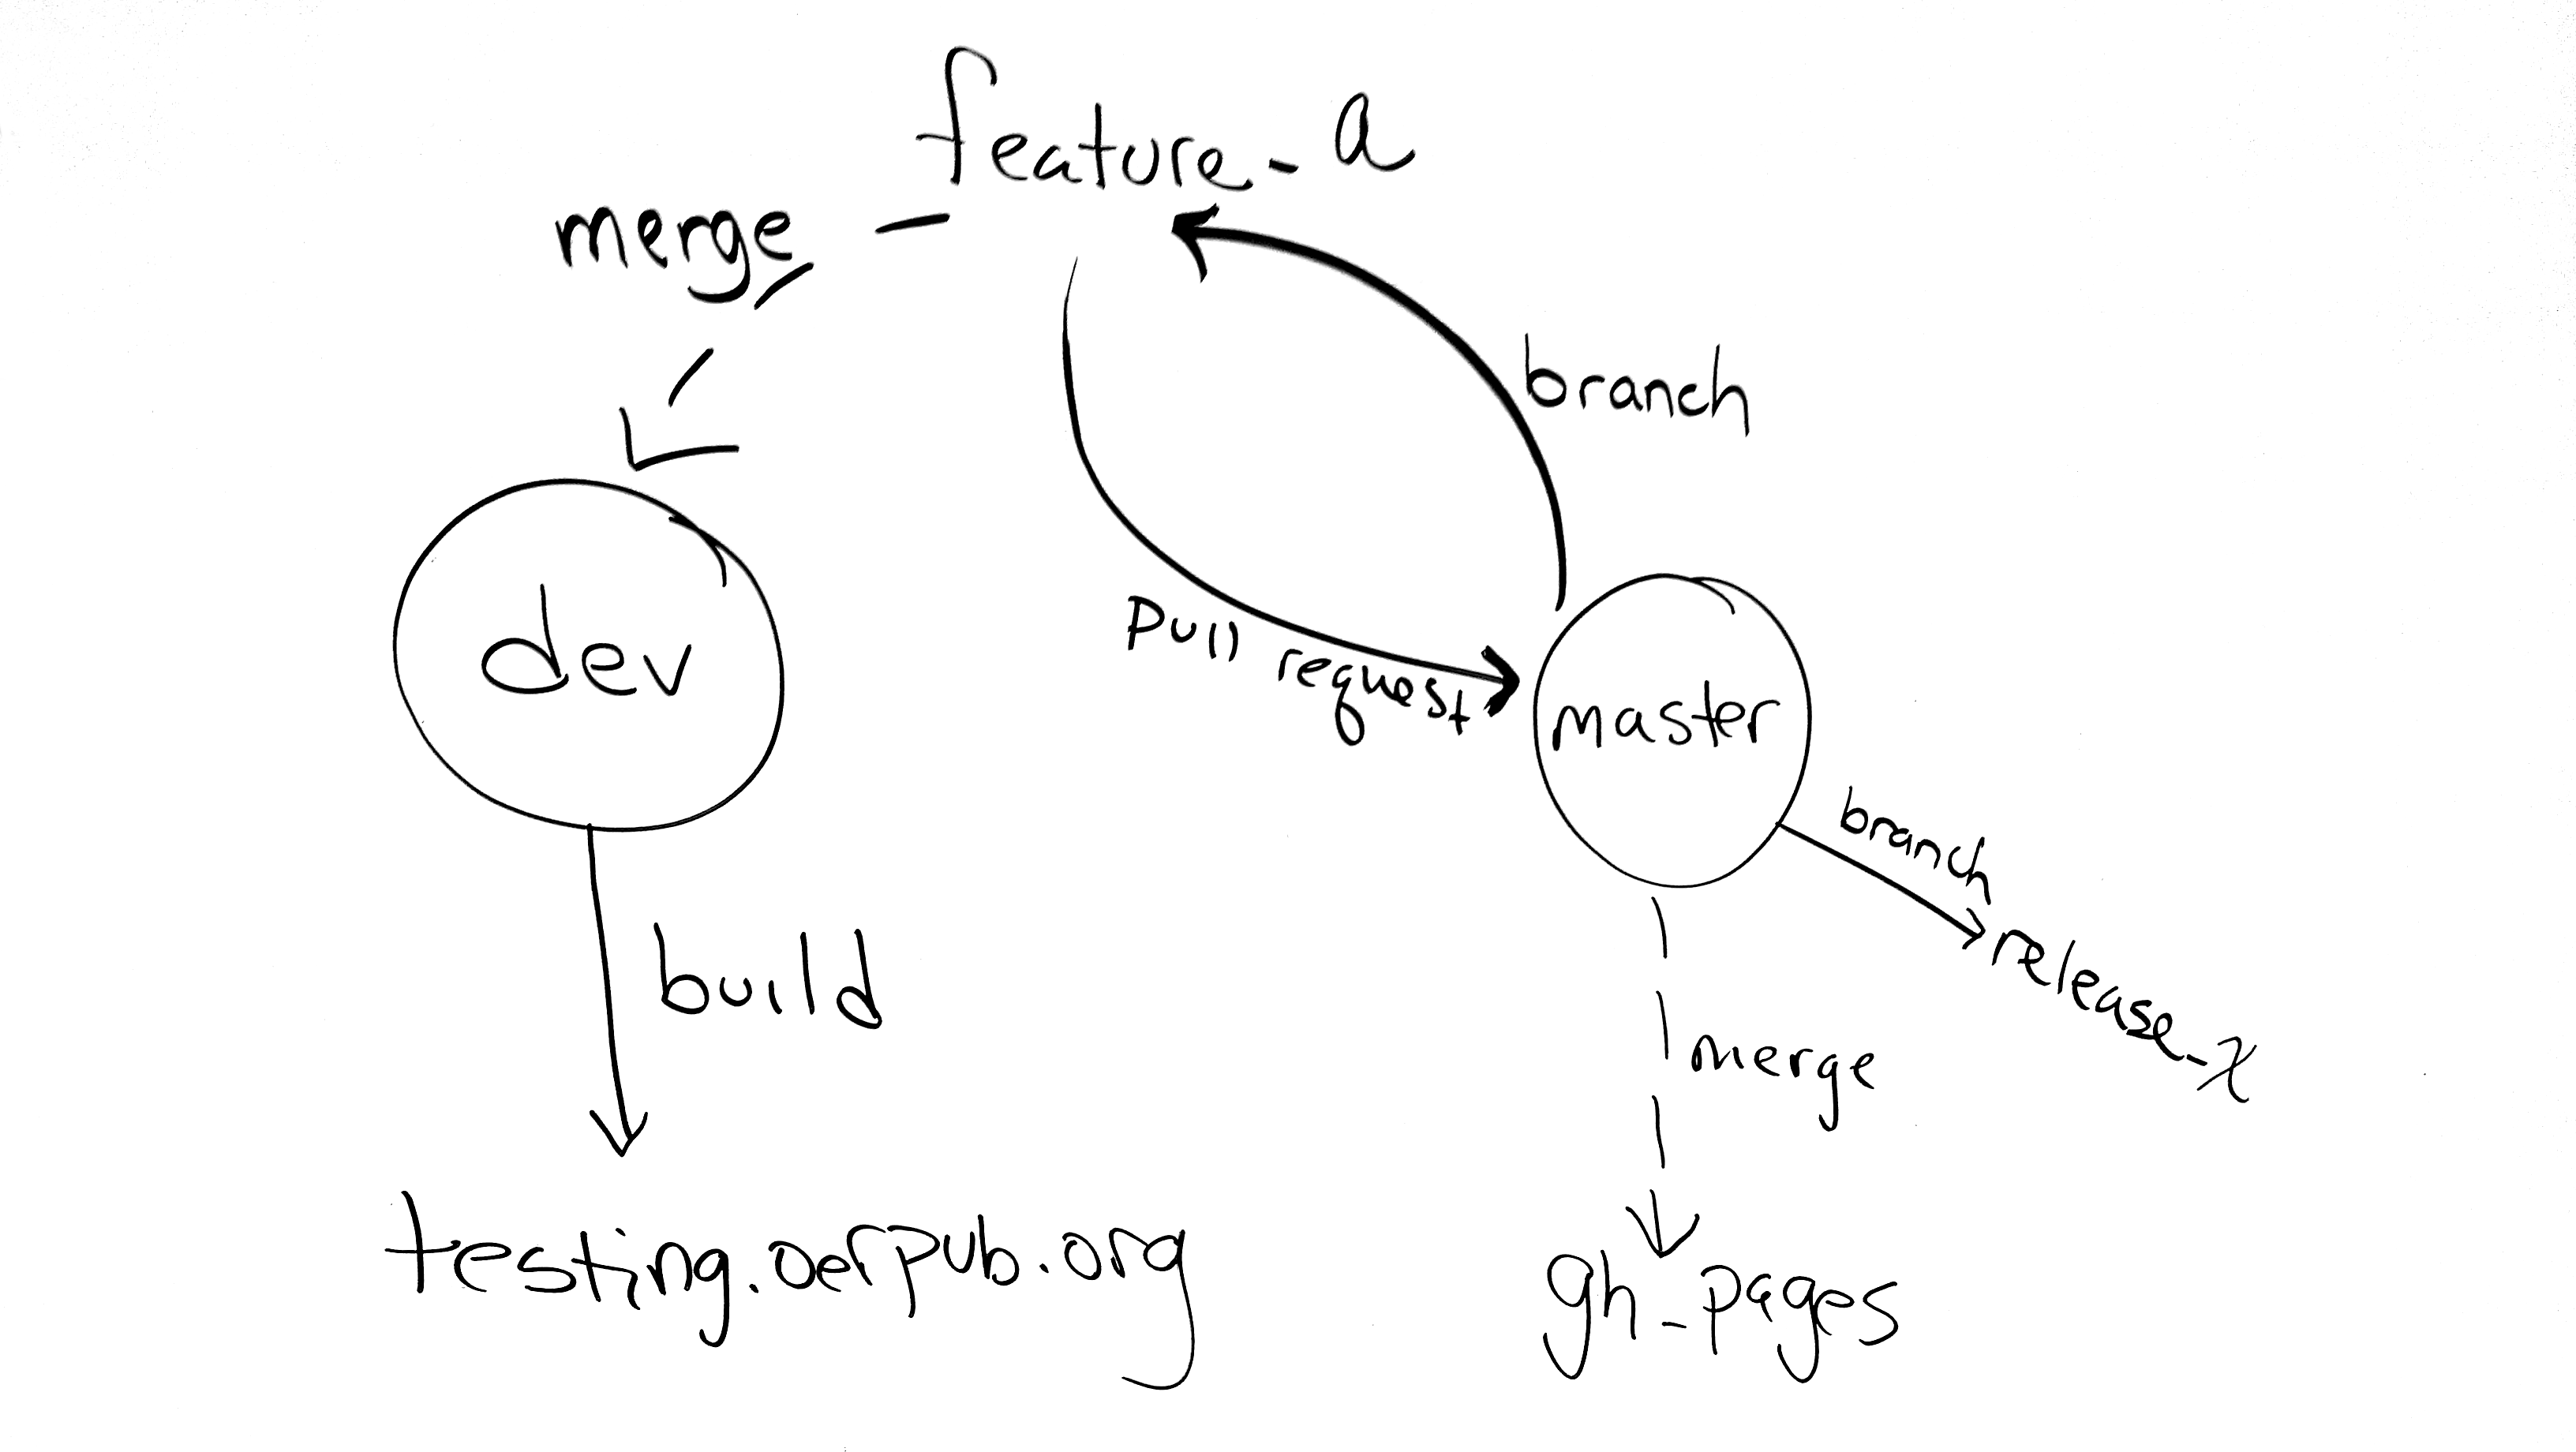 feature_a
merge
branch
dev
Pull request
master
branch
release_x
build
merge
testing.oerpub.org
gh_pages